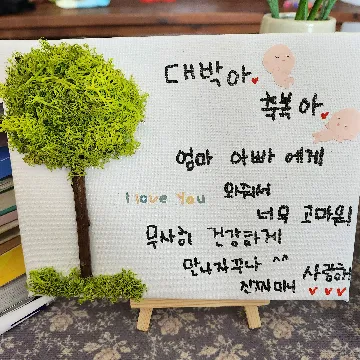 대박아♥
축복아♥
엄마 아빠에게
I love You
와줘서
너무 고마워!
무사히 건강하게
만나자꾸나 ^^
사랑해
♥♥♥